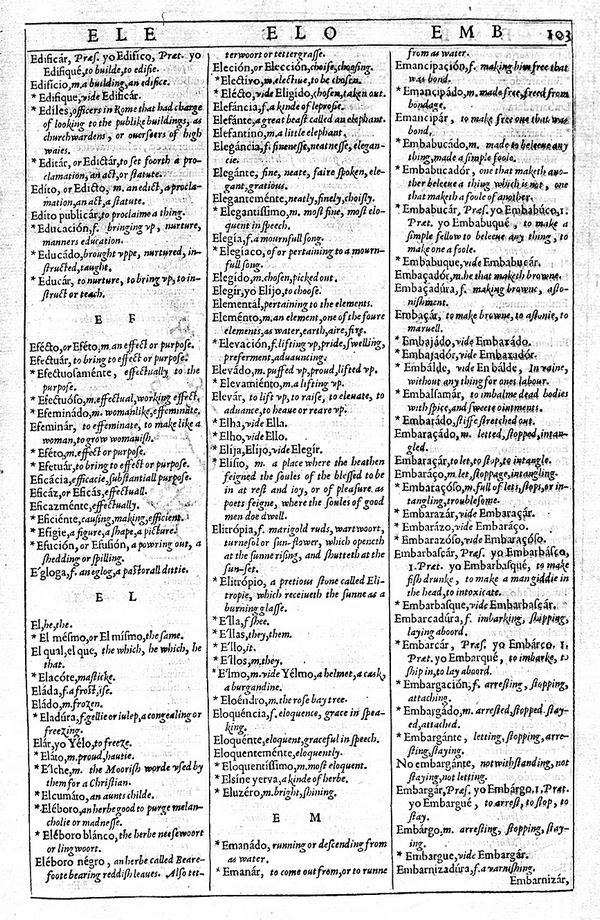 E L E
E L O
E M B
103
Edificár, Præs. yo Edifíco, Præt. yo
Edifiqué, to builde, to edifie.
Edifício, m. a building, an edifice.
* Edifique, vide Edificár.
* Edíles, officers in Rome that had charge
of looking to the publike buildings, as
churchwardens, or ouerseers of high
waies.
* Editár, or Edictár, to set foorth a pro-
clamation, an act, or statute.
Edíto, or Edicto, m. an edict, a procla-
mation, an act, a statute.
Edíto publicár, to proclaime a thing.
* Educación, f. bringing vp, nurture,
manners education.
* Educádo, brought vppe, nurtured, in-
structed, taught.
* Educár, to nurture, to bring vp, to in-
struct or teach.
E F
Efécto, or Eféto, m. an effect or purpose.
Efectuár, to bring to effect or purpose.
* Efectuosaménte, effectually to the
purpose.
* Efectuóso, m. effectual, working effect.
* Efeminádo, m. womanlike, effeminate.
Efeminár, to effeminate, to make like a
woman, to grow womanish.
* Eféto, m. effect or purpose.
* Efetuár, to bring to effect or purpose.
Eficácia, efficacie, substantiall purpose.
Eficáz, or Eficás, effectuall.
Eficazménte, effectually.
* Eficiénte, causing, making, efficient.
* Efígie, a figure, a shape, a picture.
* Efución, or Efusión, a powring out, a
shedding or spilling.
E'gloga, f. an eglog, a pastorall dittie.
E L
El, he, the.
* El mésmo, or El mísmo, the same.
El qual, el que, the which, he which, he
that.
* Elacóte, masticke.
Eláda, f. a frost, ise.
Eládo, m. frozen.
* Eladúra, f. gellie or iulep, a congealing or
freezing.
Elár, yo Yélo, to freeze.
* Eláto, m. proud, hautie.
* E'lche, m. the Moorish worde vsed by
them for a Christian.
* Elcumáto, an aunts childe.
* Eléboro, an herbe good to purge melan-
cholie or madnesse.
* Eléboro blánco, the herbe neesewoort
or lingwoort.
Eléboro négro, an herbe called Beare-
foote bearing reddish leaues. Also tet-
terwoort or tettergrasse.
Eleción, or Elección, choise, choosing.
* Electívo, m. electiue, to be chosen.
* Elécto, vide Eligído, chosen, taken out.
Elefáncia, f. a kinde of leprosie.
Elefánte, a great beast called an elephant.
Elefantíno, m. a little elephant.
Elegáncia, f. finenesse, neatnesse, elegan-
cie.
Elegánte, fine, neate, faire spoken, ele-
gant, gratious.
Elegantemente, neatly, finely, choisly.
* Elegantíssimo, m. most fine, most elo-
quent in speech.
Elegía, f. a mournfull song.
* Elegíaco, of or pertaining to a mourn-
full song.
Elegído, m. chosen, picked out.
Elegír, yo Elijo, to choose.
Elementál, pertaining to the elements.
Eleménto, m. an element, one of the foure
elements, as water, earth, aire, fire.
* Elevación, f. lifting vp, pride, swelling,
preferment, aduauncing.
Elevádo, m. puffed vp, proud, lifted vp.
* Elevamiénto, m. a lifting vp.
Elevár, to lift vp, to raise, to eleuate, to
aduance, to heaue or reare vp.
* Elha, vide Ella.
* Elho, vide Ello.
* Elíja, Elijo, vide Elegir.
* Elísio, m. a place where the heathen
feigned the soules of the blessed to be
in at rest and ioy, or of pleasure, as
poets feigne, where the soules of good
men doe dwell.
Elitrópia, f. marigold ruds, wartwoort,
turnesol or sun-flower, which openeth
at the sunne rising, and shutteth at the
sun-set.
* Elitrópio, a pretious stone called Eli-
tropie, which receiueth the sunne as a
burning glasse.
* E'lla, f. shee.
* E'llas, they, them.
* E'llo, it.
* E'llos, m. they.
* E'lmo, m. vide Yélmo, a helmet, a cask,
a burgandine.
* Eloéndro, m. the rose bay tree.
Eloquéncia, f. eloquence, grace in spea-
king.
Eloquénte, eloquent, graceful in speech.
Eloquentemente, eloquently.
* Eloquentíssimo, m. most eloquent.
* Elsíne yerva, a kinde of herbe.
* Eluzéro, m. bright, shining.
E M
* Emanádo, running or descending from
as water.
* Emanár, to come out from, or to runne
from as water.
Emancipación, f. making him free that
was bond.
* Emancipádo, m. made free, freed from
bondage.
Emancipár, to make free one that was
bond.
* Embabucádo, m. made to beleeue any
thing, made a simple foole.
* Embabucadór, one that maketh ano-
ther beleeue a thing which is not, one
that maketh a foole of another.
* Embabucár, Præs. yo Embabúco, 1.
Præt. yo Embabuqué, to make a
simple fellow to beleeue any thing, to
make one a foole.
* Embabuque, vide Embabucár.
Embaçadór, m. he that maketh browne.
Embaçadúra, f. making browne, asto-
nishment.
Embaçár, to make browne, to astonie, to
maruell.
* Embajádo, vide Embaxádo.
* Embajadór, vide Embaxadór.
* Embálde, vide En bálde, In vaine,
without any thing for ones labour.
* Embalsamár, to imbalme dead bodies
with spice, and sweete ointments.
* Embarádo, stiffe stretched out.
Embaraçádo, m. letted, stopped, intan-
gled.
Embaraçár, to let, to stop, to intangle.
Embaráço, m. let, stoppage, intangling.
* Embaraçóso, m. full of lets, stops, or in-
tangling, troublesome.
* Embarazár, vide Embaraçár.
* Embarázo, vide Embaráço.
* Embarazóso, vide Embaraçóso.
Embarbascár, Præs. yo Embarbásco,
1. Præt. yo Embarbasqué, to make
fish drunke, to make a man giddie in
the head, to intoxicate.
* Embarbasque, vide Embarbascár.
Embarcadúra, f. imbarking, shipping,
laying aboord.
* Embarcár, Præs. yo Embárco, 1.
Præt. yo Embarqué, to imbarke, to
ship in, to lay aboord.
* Embargación, f. arresting, stopping,
attaching.
* Embargádo, m. arrested, stopped, stay-
ed, attached.
* Embargánte, letting, stopping, arre-
sting, staying.
No embargánte, notwithstanding, not
staying, not letting.
Embargár, Præs. yo Embárgo, 1. Præt.
yo Embargué, to arrest, to stop, to
stay.
Embárgo, m. arresting, stopping, stay-
ing.
* Embargue, vide Embargár.
Embarnizadúra, f. a varnishing.
Embarnizár,